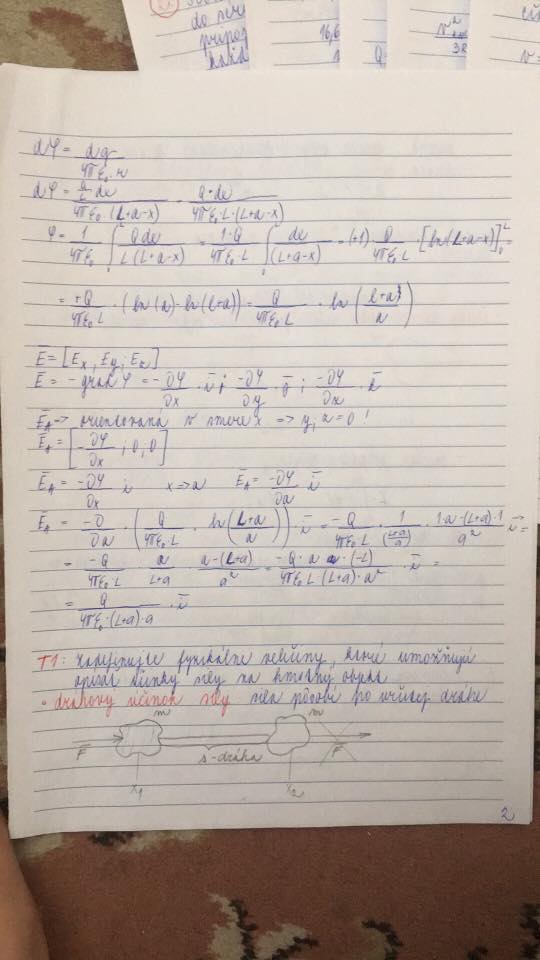 do
16,6
Q
dφ = dq / 4πε₀·r
dφ = Q/L dx / 4πε₀·(L+a-x) = Q·dx / 4πε₀·L·(L+a-x)
φ = 1/4πε₀ ∫₀ᴸ Q dx / L(L+a-x) = 1·Q/4πε₀·L ∫₀ᴸ dx/(L+a-x) = (-1) Q/4πε₀L · [ln(L+a-x)]₀ᴸ =
= -Q/4πε₀L · (ln(a) - ln(L+a)) = Q/4πε₀L · ln((L+a)/a)
E̅ = [Ex, Ey; Ez]
E̅ = - grad φ = -∂φ/∂x · i̅; -∂φ/∂y · j̅; -∂φ/∂z · k̅
E̅_A => orientovaná v smere x => y, z = 0!
E̅_A = [-∂φ/∂x; 0; 0]
E̅_A = -∂φ/∂x i x→a E̅_A = -∂φ/∂a i̅
E̅_A = -∂/∂a · (Q/4πε₀·L · ln((L+a)/a)) · i̅ = -Q/4πε₀·L · 1/((L+a)/a) · (1·a-(L+a)·1)/a² i⃗ =
= -Q/4πε₀·L · a/(L+a) · (a-(L+a))/a² = -Q·a·(-L)/4πε₀L(L+a)·a² · i̅ =
= Q/4πε₀·(L+a)·a · i̅
T1: zadefinujte fyzikálne veličiny, ktoré umožňujú
opísať účinky sily na hmotný objekt
• dráhový účinok sily sila pôsobí po určitej dráhe
m m
F̅ s-dráha F̅
x₁ x₂
2